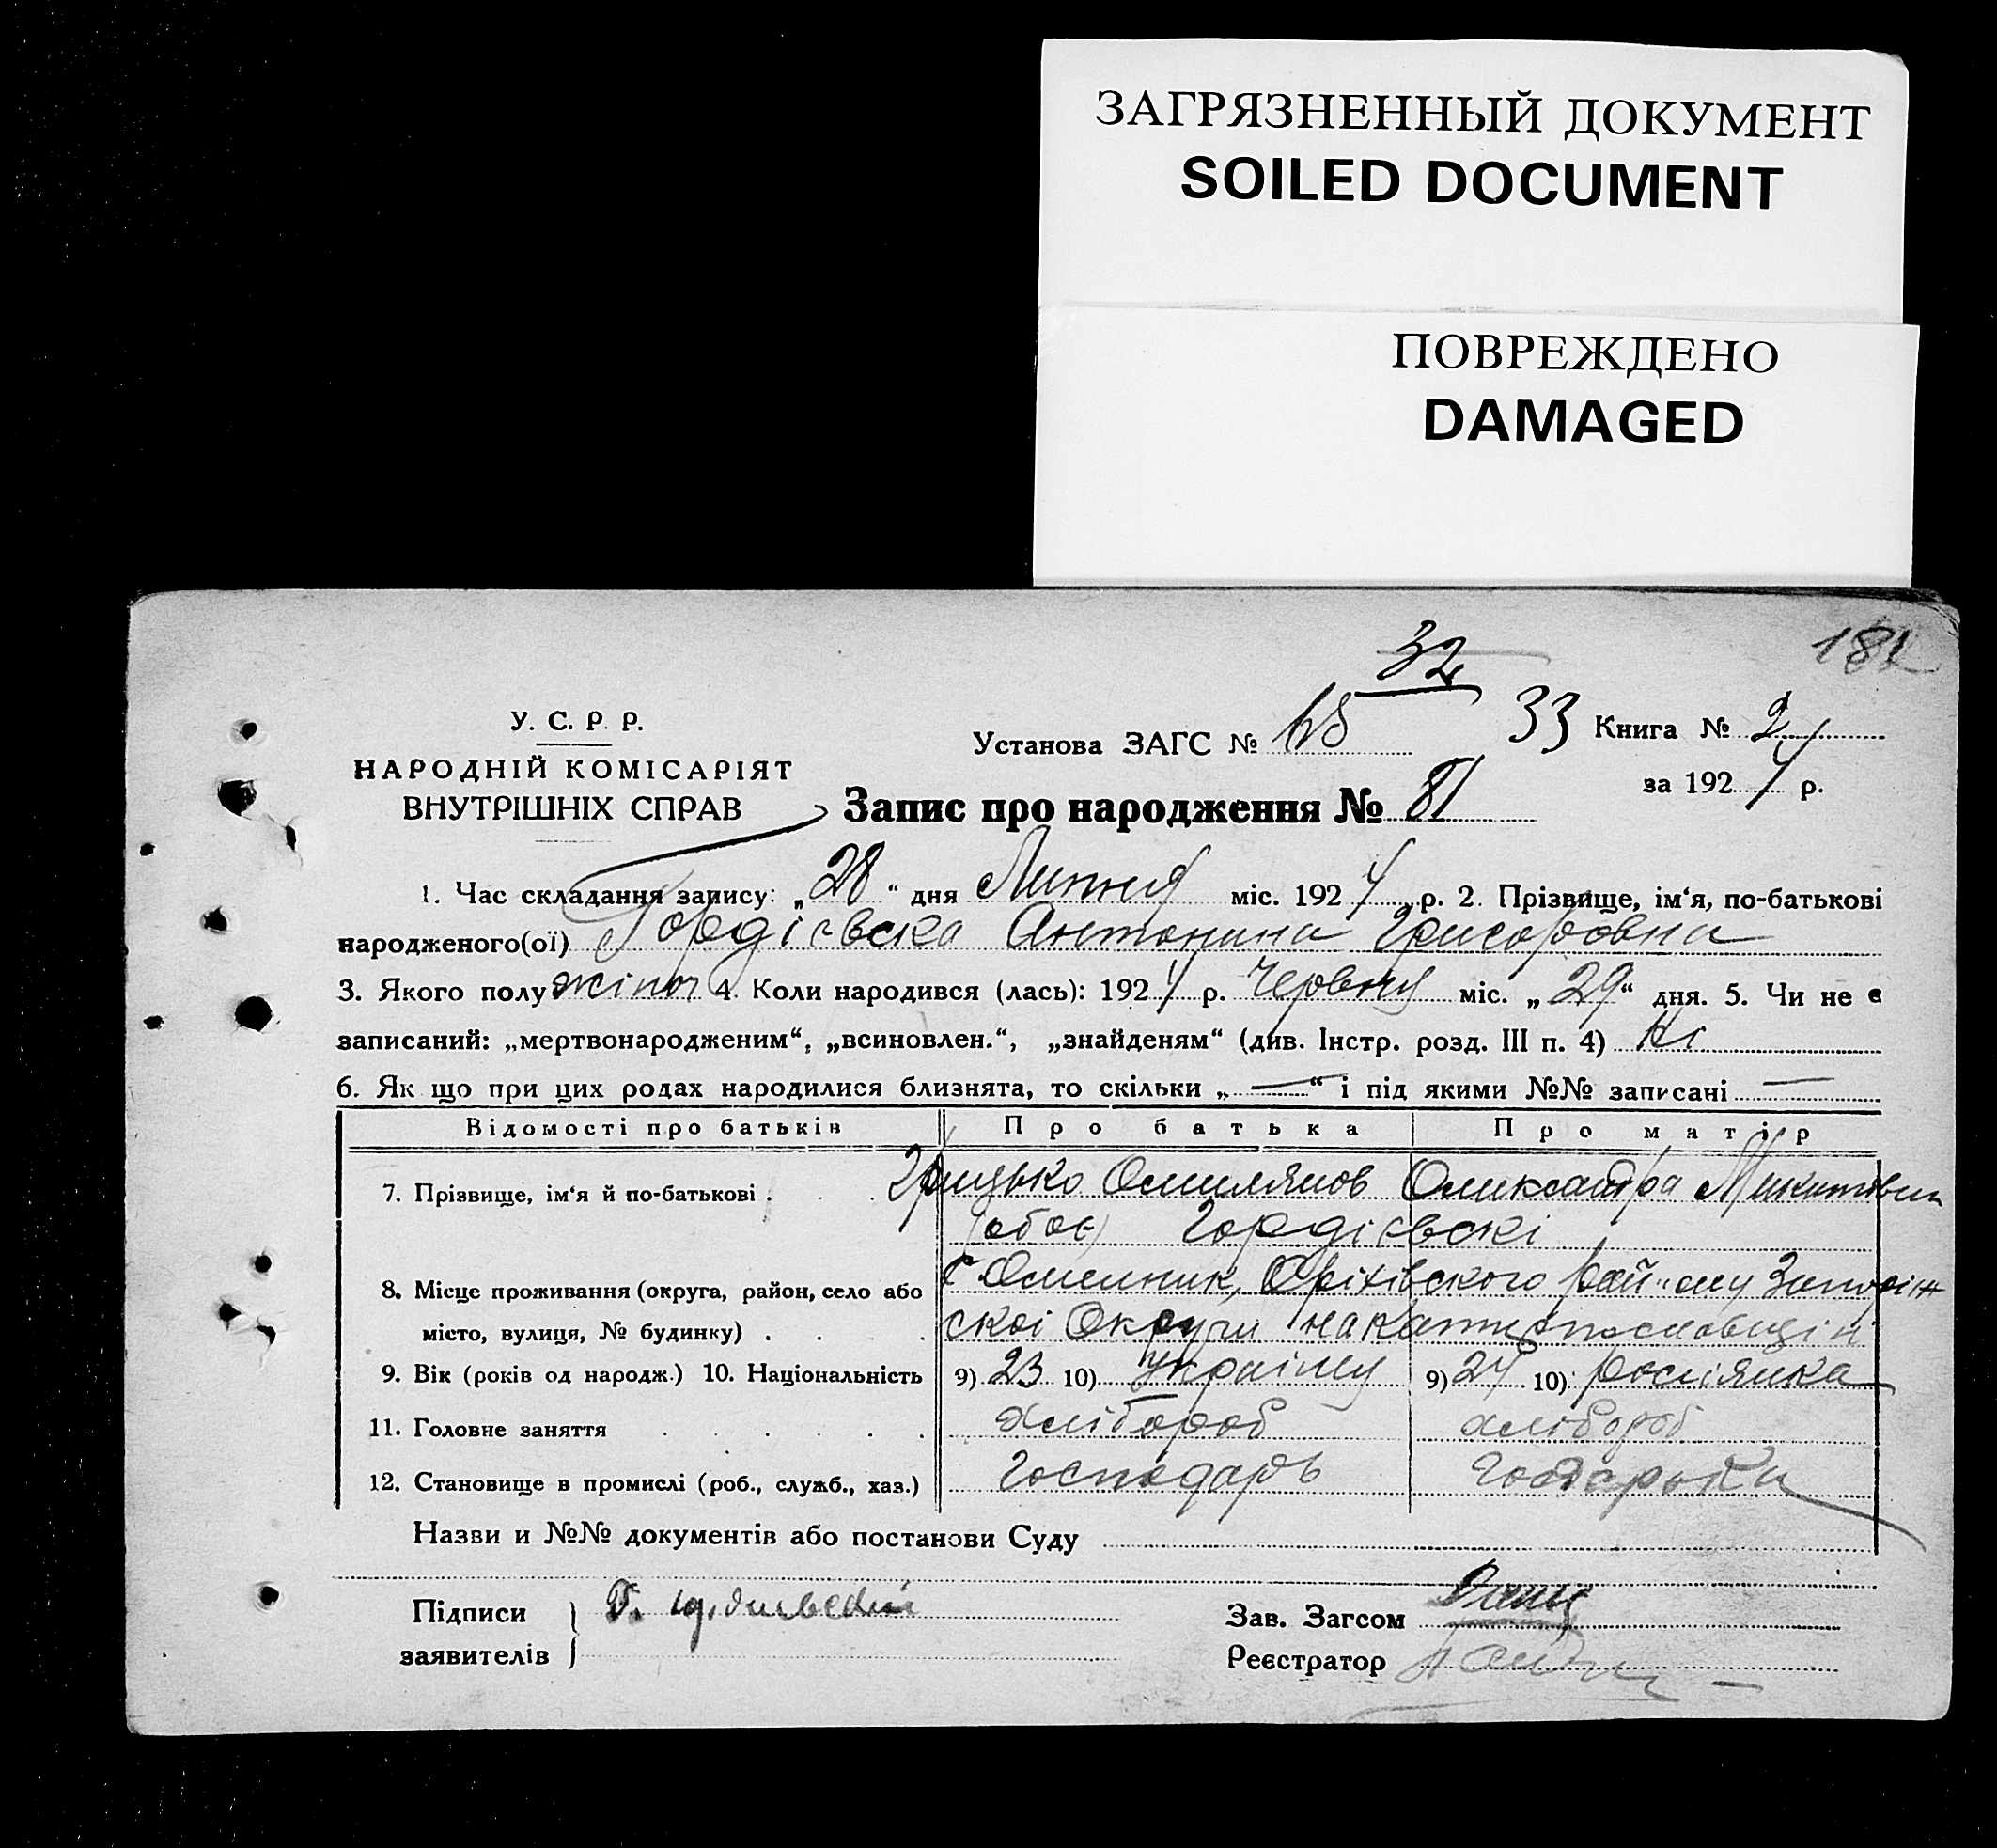 ЗАГРЯЗНЕННЫЙ ДОКУМЕНТ
SOILED DOCUMENT
ПОВРЕЖДЕНО
DAMAGED
181
32
У. С. Р. Р.
НАРОДНІЙ КОМІСАРІЯТ
ВНУТРІШНІХ СПРАВ
Установа ЗАГС № 33 Книга № 2
за 1924 р.
Запис про народження № 81
1. Час складання запису: „28“ дня Липня міс. 1924 р. 2. Прізвище, ім‘я, по-батькові
народженого(ої) Гордієвска Антонина Григоровна
3. Якого полу жіноч 4. Коли народився (лась): 1924 р. Червня міс. „29“ дня. 5. Чи не є
записаний: „мертвонародженим“, „всиновлен.“, „знайденям“ (див. Інстр. розд. III п. 4) Ні
6. Як що при цих родах народилися близнята, то скільки „—“ і під якими №№ записані —
Відомості про батьків Про батька Про матір
7. Прізвище, ім‘я й по-батькові . . . Грицько Омилянов Олександра Микитовна
(обоє) Гордієвскі
8. Місце проживання (округа, район, село або с Омельник, Оріхівского рай
місто, вулиця, № будинку) . . . скоі Округи на
9. Вік (років од народж.) 10. Національність 9) 23 10) Украінец 9) 24 10) росіянка
11. Головне заняття . . . . . . хлібороб хлібороб
12. Становище в промислі (роб., служб., хаз.) Господарь
Назви и №№ документів або постанови Суду
Підписи
заявителів
Зав. Загсом
Реєстратор